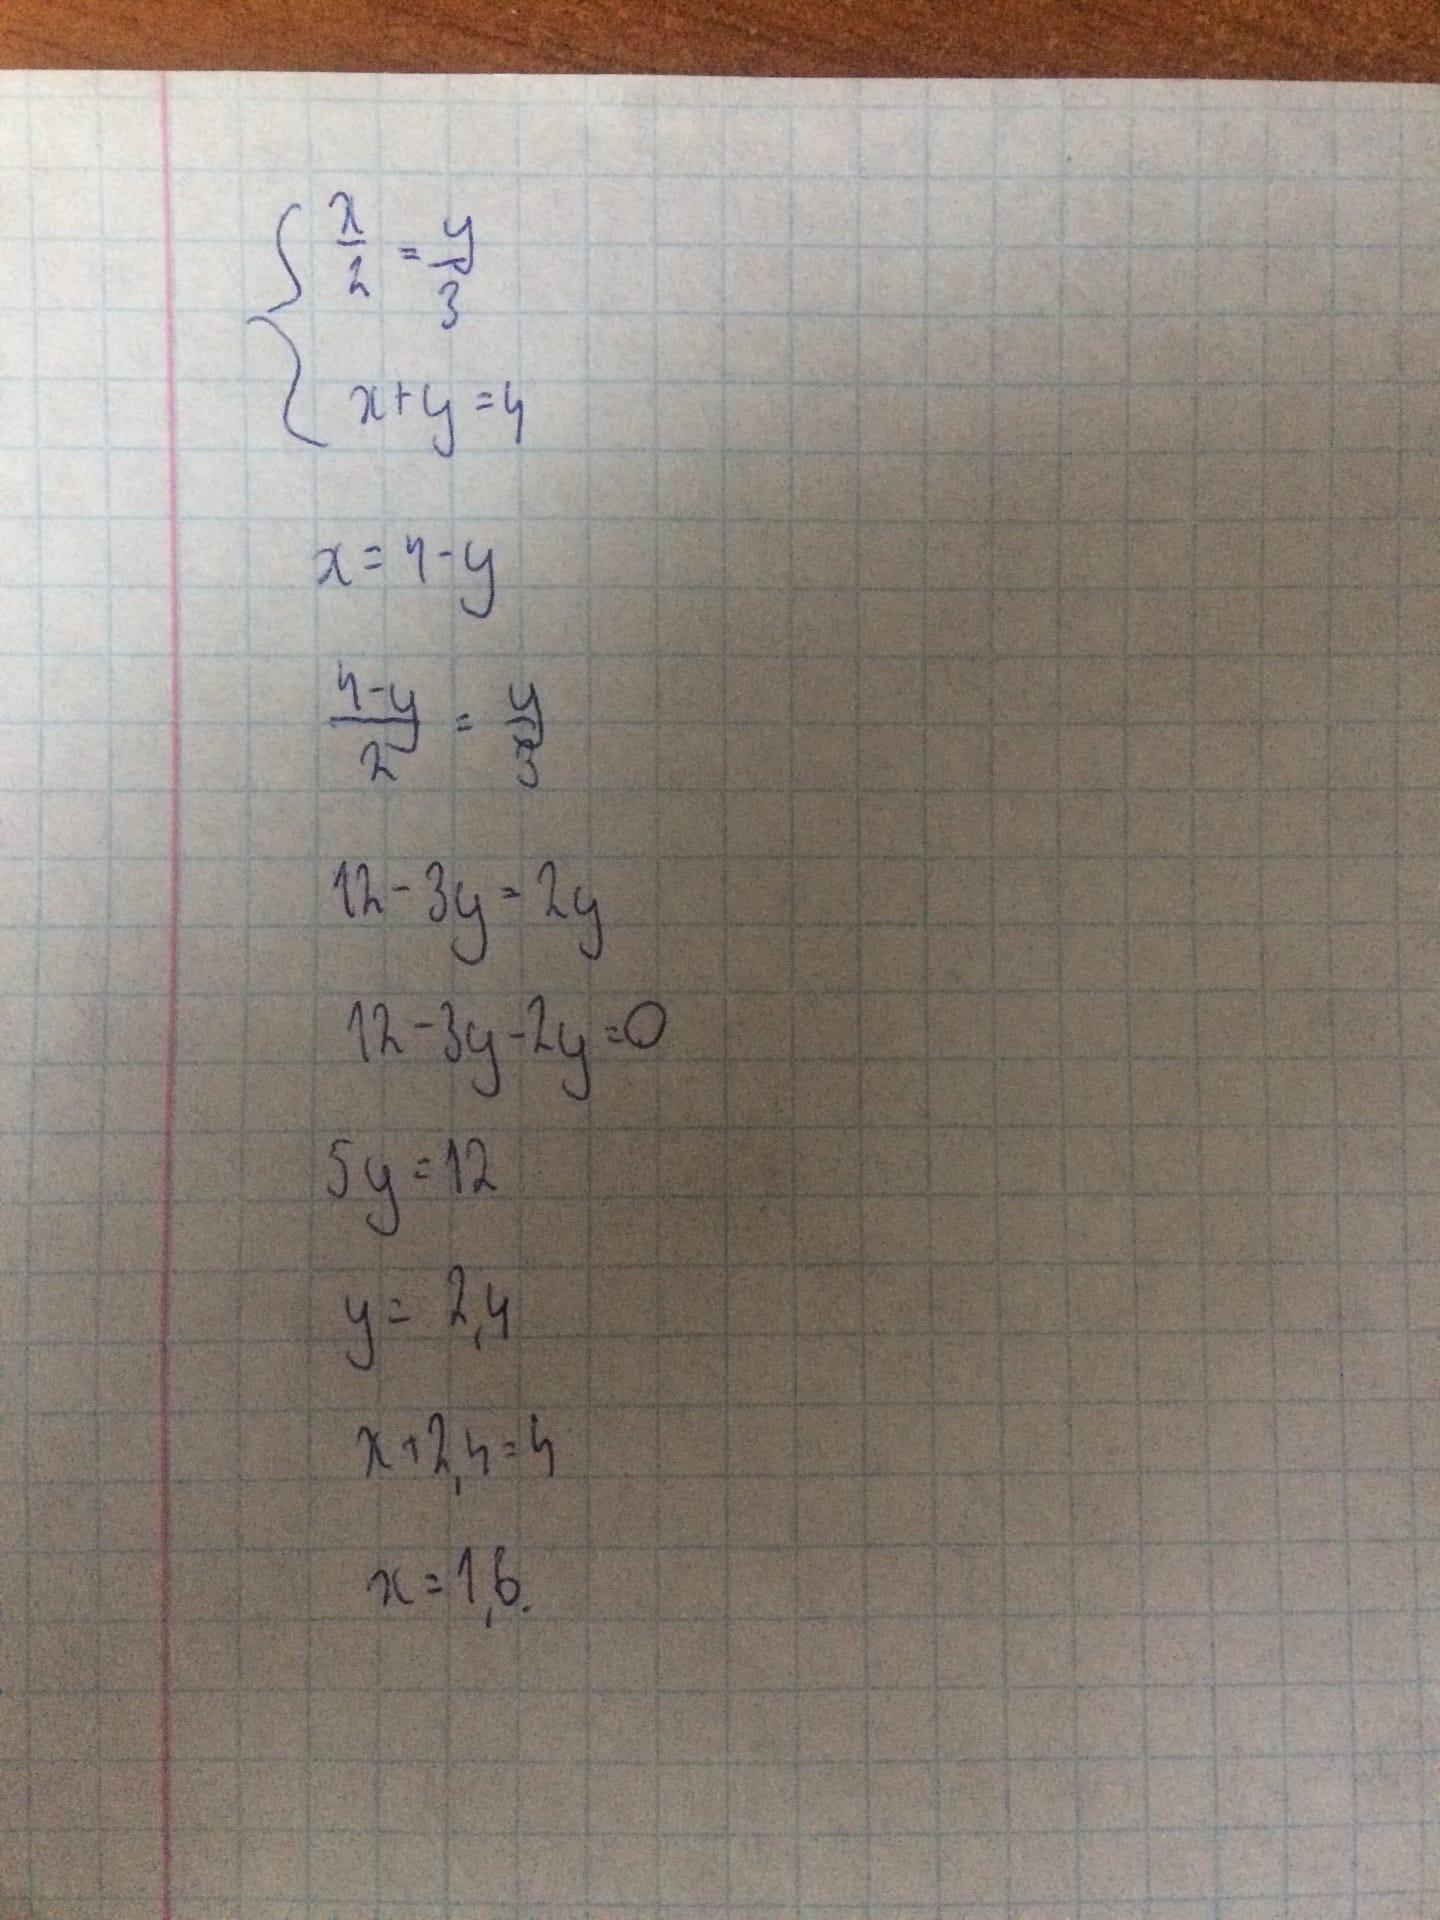 { x/2 = y/3
x+y=4
x=4-y
4-y/2 = y/3
12-3y=2y
12-3y-2y=0
5y=12
y= 2,4
x+2,4=4
x=1,6.